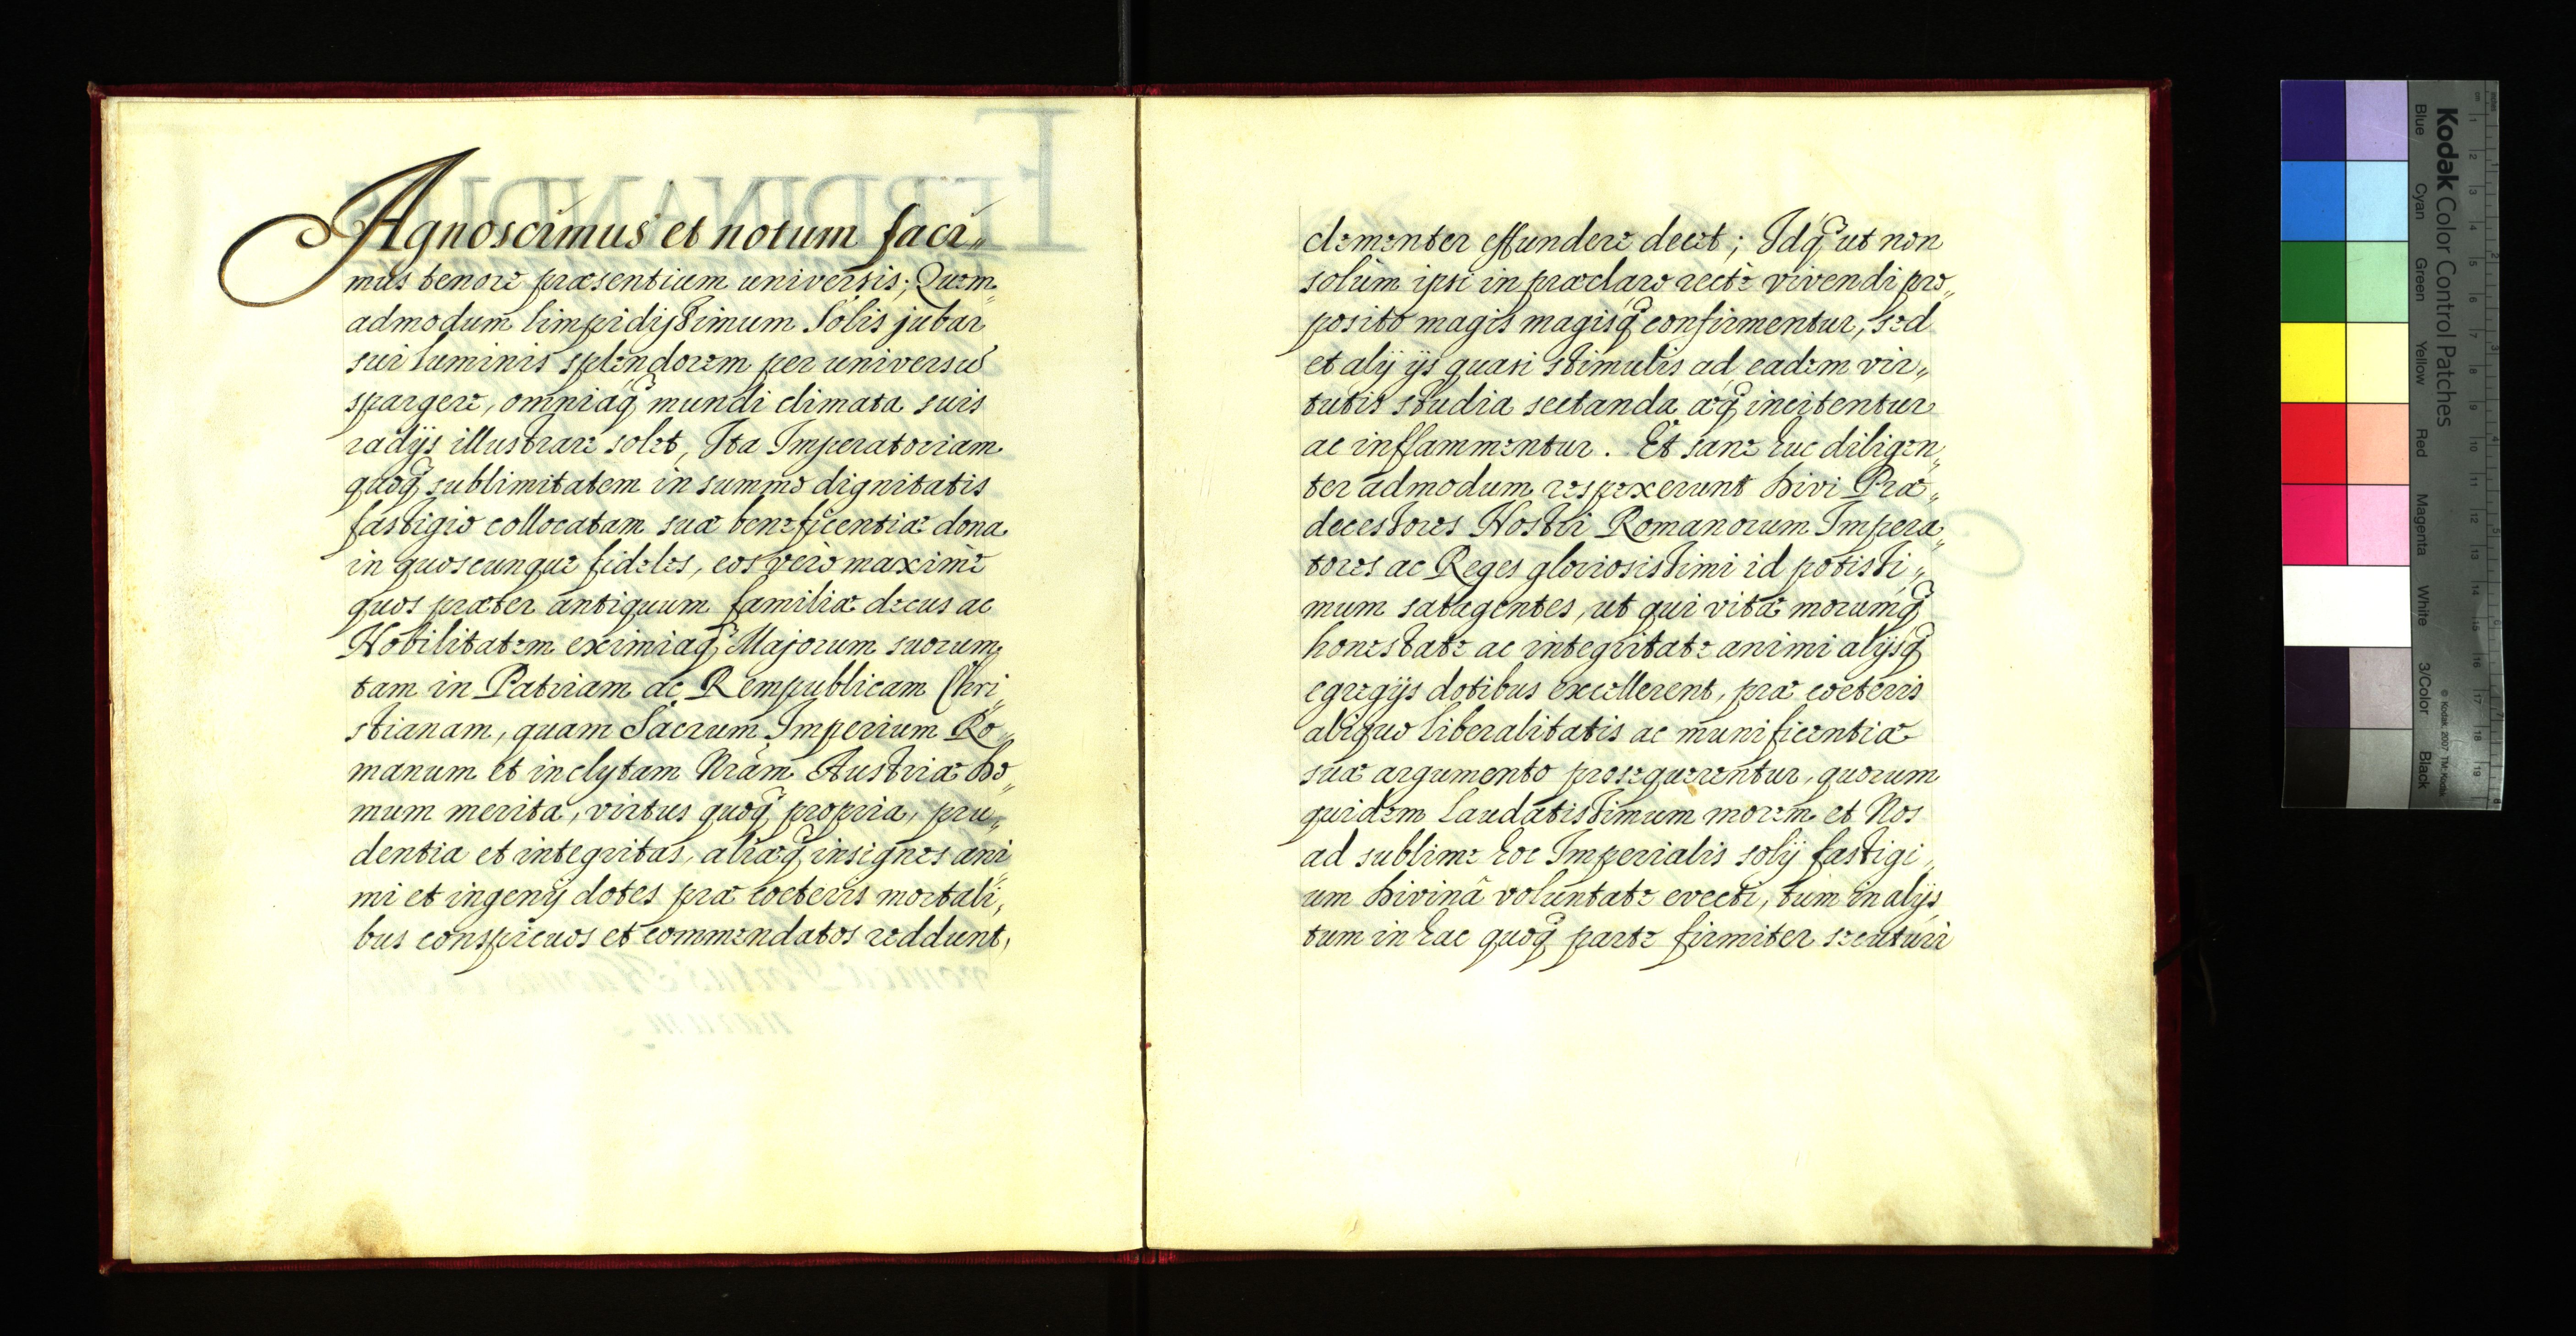 Agnoscimus et notum faci„
mus tenore præsentium universis; Quem„
admodum limpidissimum Solis jubar
sui luminis splendorem per universū
spargere, omniaq́ mundi climata suis
radijs illustrare solet, Ita Imperatoriam
quoq́ sublimitatem in summo dignitatis
fastigio collocatam suæ beneficentiæ dona
in quoscunque fideles, eos verò maximè
quos præter antiquum familiæ decus ac
Nobilitatem eximiaq́ Majorum suorum
tam in Patriam ac Rempublicam Chri„
stianam, quam Sacrum Imperium Ro„
manum et inclytam Nrãm Austriæ Do„
mum merita, virtus quoq́ propria, pru„
dentia et integritas, aliæq́ insignes ani„
mi et ingenij dotes præ cœteris mortali„
bus conspicuos et commendatos reddunt,
clementer effundere decet; Idq́ ut non
solùm ipsi in præclaro rectè vivendi pro„
posito magis magisq́ confirmentur, sed
et alij ijs quasi stimulis ad eadem vir„
tutis studia sectanda æq́ incitentur
ac inflammentur. Et sane huc diligen„
ter admodum respexerunt Divi Præ„
decessores Nostri Romanorum Impera„
tores ac Reges gloriosissimi id potissi„
mum satagentes, ut qui vitæ morumq́
honestate ac integritate animi alijsq́
egregijs dotibus excellerent, præ cœteris
aliquo liberalitatis ac munificentiæ
suæ argumento prosequerentur, quorum
quidem laudatissimum morem et Nos
ad sublime hoc Imperialis solij fastigi„
um Divinâ voluntate evecti, tum in alijs
tum in hac quoq́ parte firmiter secuturi
Kodak Color Control Patches
Blue Cyan Green Yellow Red Magenta White 3/Color Black
© Kodak, 2007 TM: Kodak